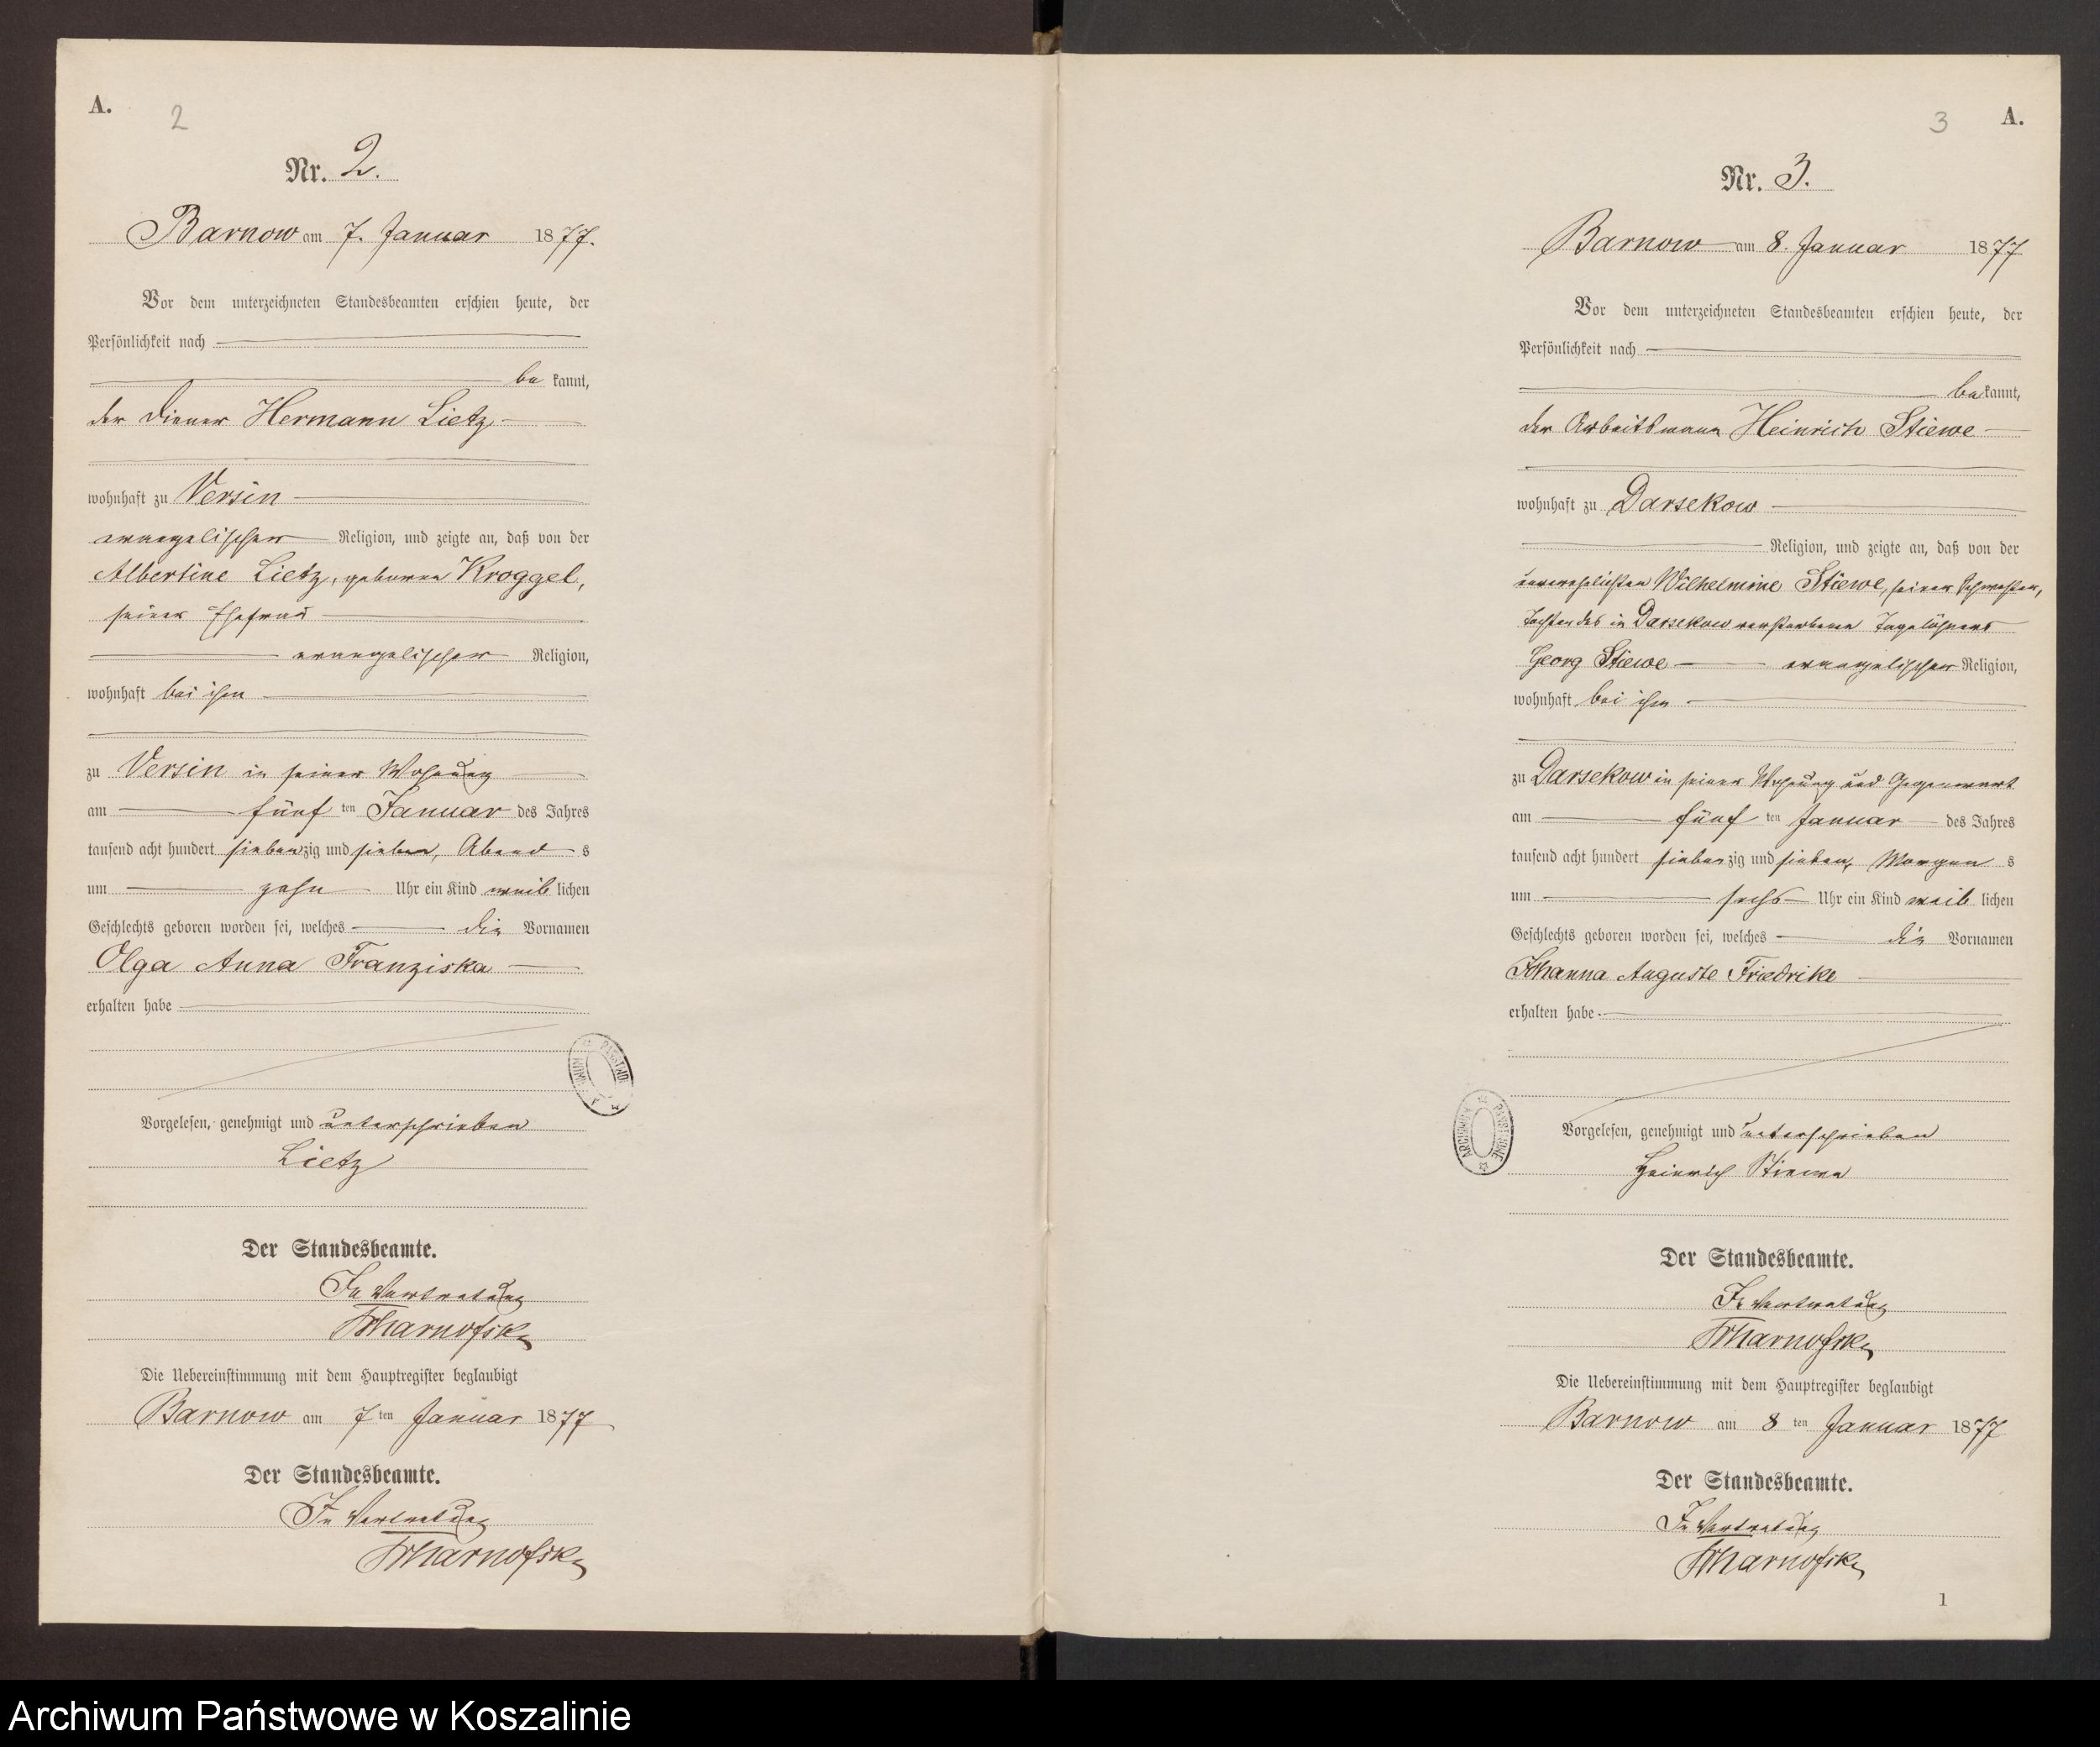 A.
2
Nr. 2.
Barnow am 7. Januar 1877.
Vor dem unterzeichneten Standesbeamten erschien heute, der
Persönlichkeit nach
be kannt,
der Diener Hermann Lietz
wohnhaft zu Versin
evangelischer Religion, und zeigte an, daß von der
Albertine Lietz, geborene Kroggel,
seiner Ehefrau
evangelischer Religion,
wohnhaft bei ihm
zu Versin in seiner Wohnung
am fünf ten Januar des Jahres
tausend acht hundert siebenzig und sieben, Abend s
um zehn Uhr ein Kind weib lichen
Geschlechts geboren worden sei, welches die Vornamen
Olga Anna Franziska
erhalten habe
Vorgelesen, genehmigt und unterschrieben
Lietz
Der Standesbeamte.
In Vertretung
Die Uebereinstimmung mit dem Hauptregister beglaubigt
Barnow am 7 ten Januar 1877
Der Standesbeamte.
In Vertretung
3
A.
Nr. 3.
Barnow am 8. Januar 1877
Vor dem unterzeichneten Standesbeamten erschien heute, der
Persönlichkeit nach
be kannt,
der Arbeitsmann Heinrich Stiewe
wohnhaft zu Darsekow
Religion, und zeigte an, daß von der
unverehelichten Wilhelmine Stiewe, seiner Schwester,
Tochter des in Darsekow verstorbenen Tagelöhners
Georg Stiewe evangelischer Religion,
wohnhaft bei ihm
zu Darsekow in seiner Wohnung und Gegenwart
am fünf ten Januar des Jahres
tausend acht hundert siebenzig und sieben, Morgen s
um sechs Uhr ein Kind weib lichen
Geschlechts geboren worden sei, welches die Vornamen
Johanna Auguste Friedrike
erhalten habe
Vorgelesen, genehmigt und unterschrieben
Heinrich Stiewe
Der Standesbeamte.
In Vertretung
Die Uebereinstimmung mit dem Hauptregister beglaubigt
Barnow am 8 ten Januar 1877
Der Standesbeamte.
In Vertretung
1
Archiwum Państwowe w Koszalinie